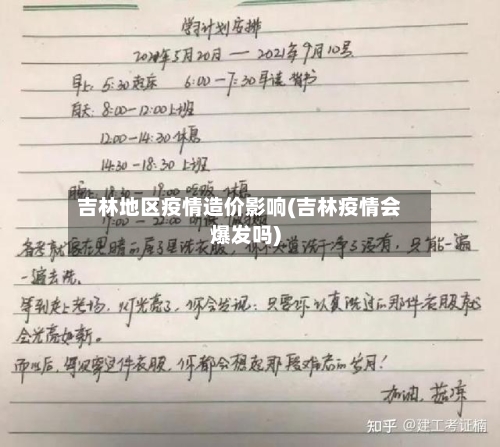 学习计划安排
2021年5月20日 — 2021年9月10号
早上: 5:30起床 6:00-7:30早读 背书
白天: 8:00-12:00上班
12:00-14:30 休息
14:30-18:30 上班
吉林地区疫情造价影响(吉林疫情会
爆发吗)
备考就像在黑暗的屋子里洗衣服, 你不知道洗干净了没有, 只能一遍
一遍去洗.
等到走上考场, 灯光亮了, 你会发现: 只要你认真洗过, 那件衣服就
会光亮如新.
而以后, 每次穿这件衣服, 你都会想起那段难忘的岁月!
加油
知乎 @建工考证楠